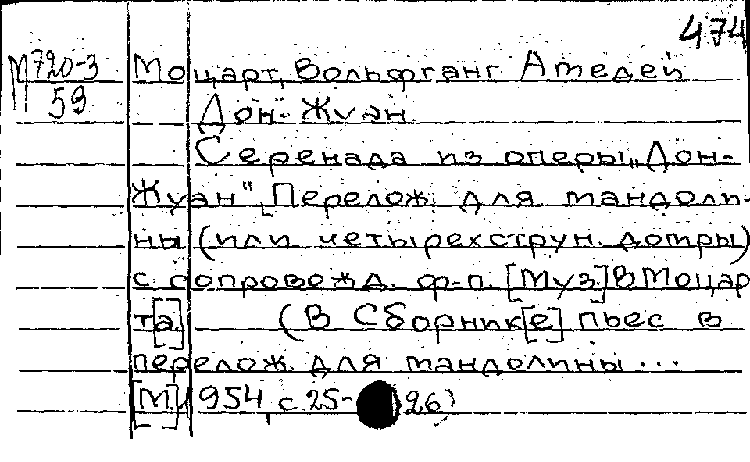 474
М720-3
59
Моцарт, Вольфганг Амедей
Дон-Жуан
Серенада из оперы „Дон-
Жуан". Перелож. для мандоли-
ны (или четырехструн. домры)
с сопровожд. ф-п. [Муз.] В Моцар
т[а.] (В Сборник[е] пьес в
перелож. для мандолины...
[М.] 1954, с. 25-26)